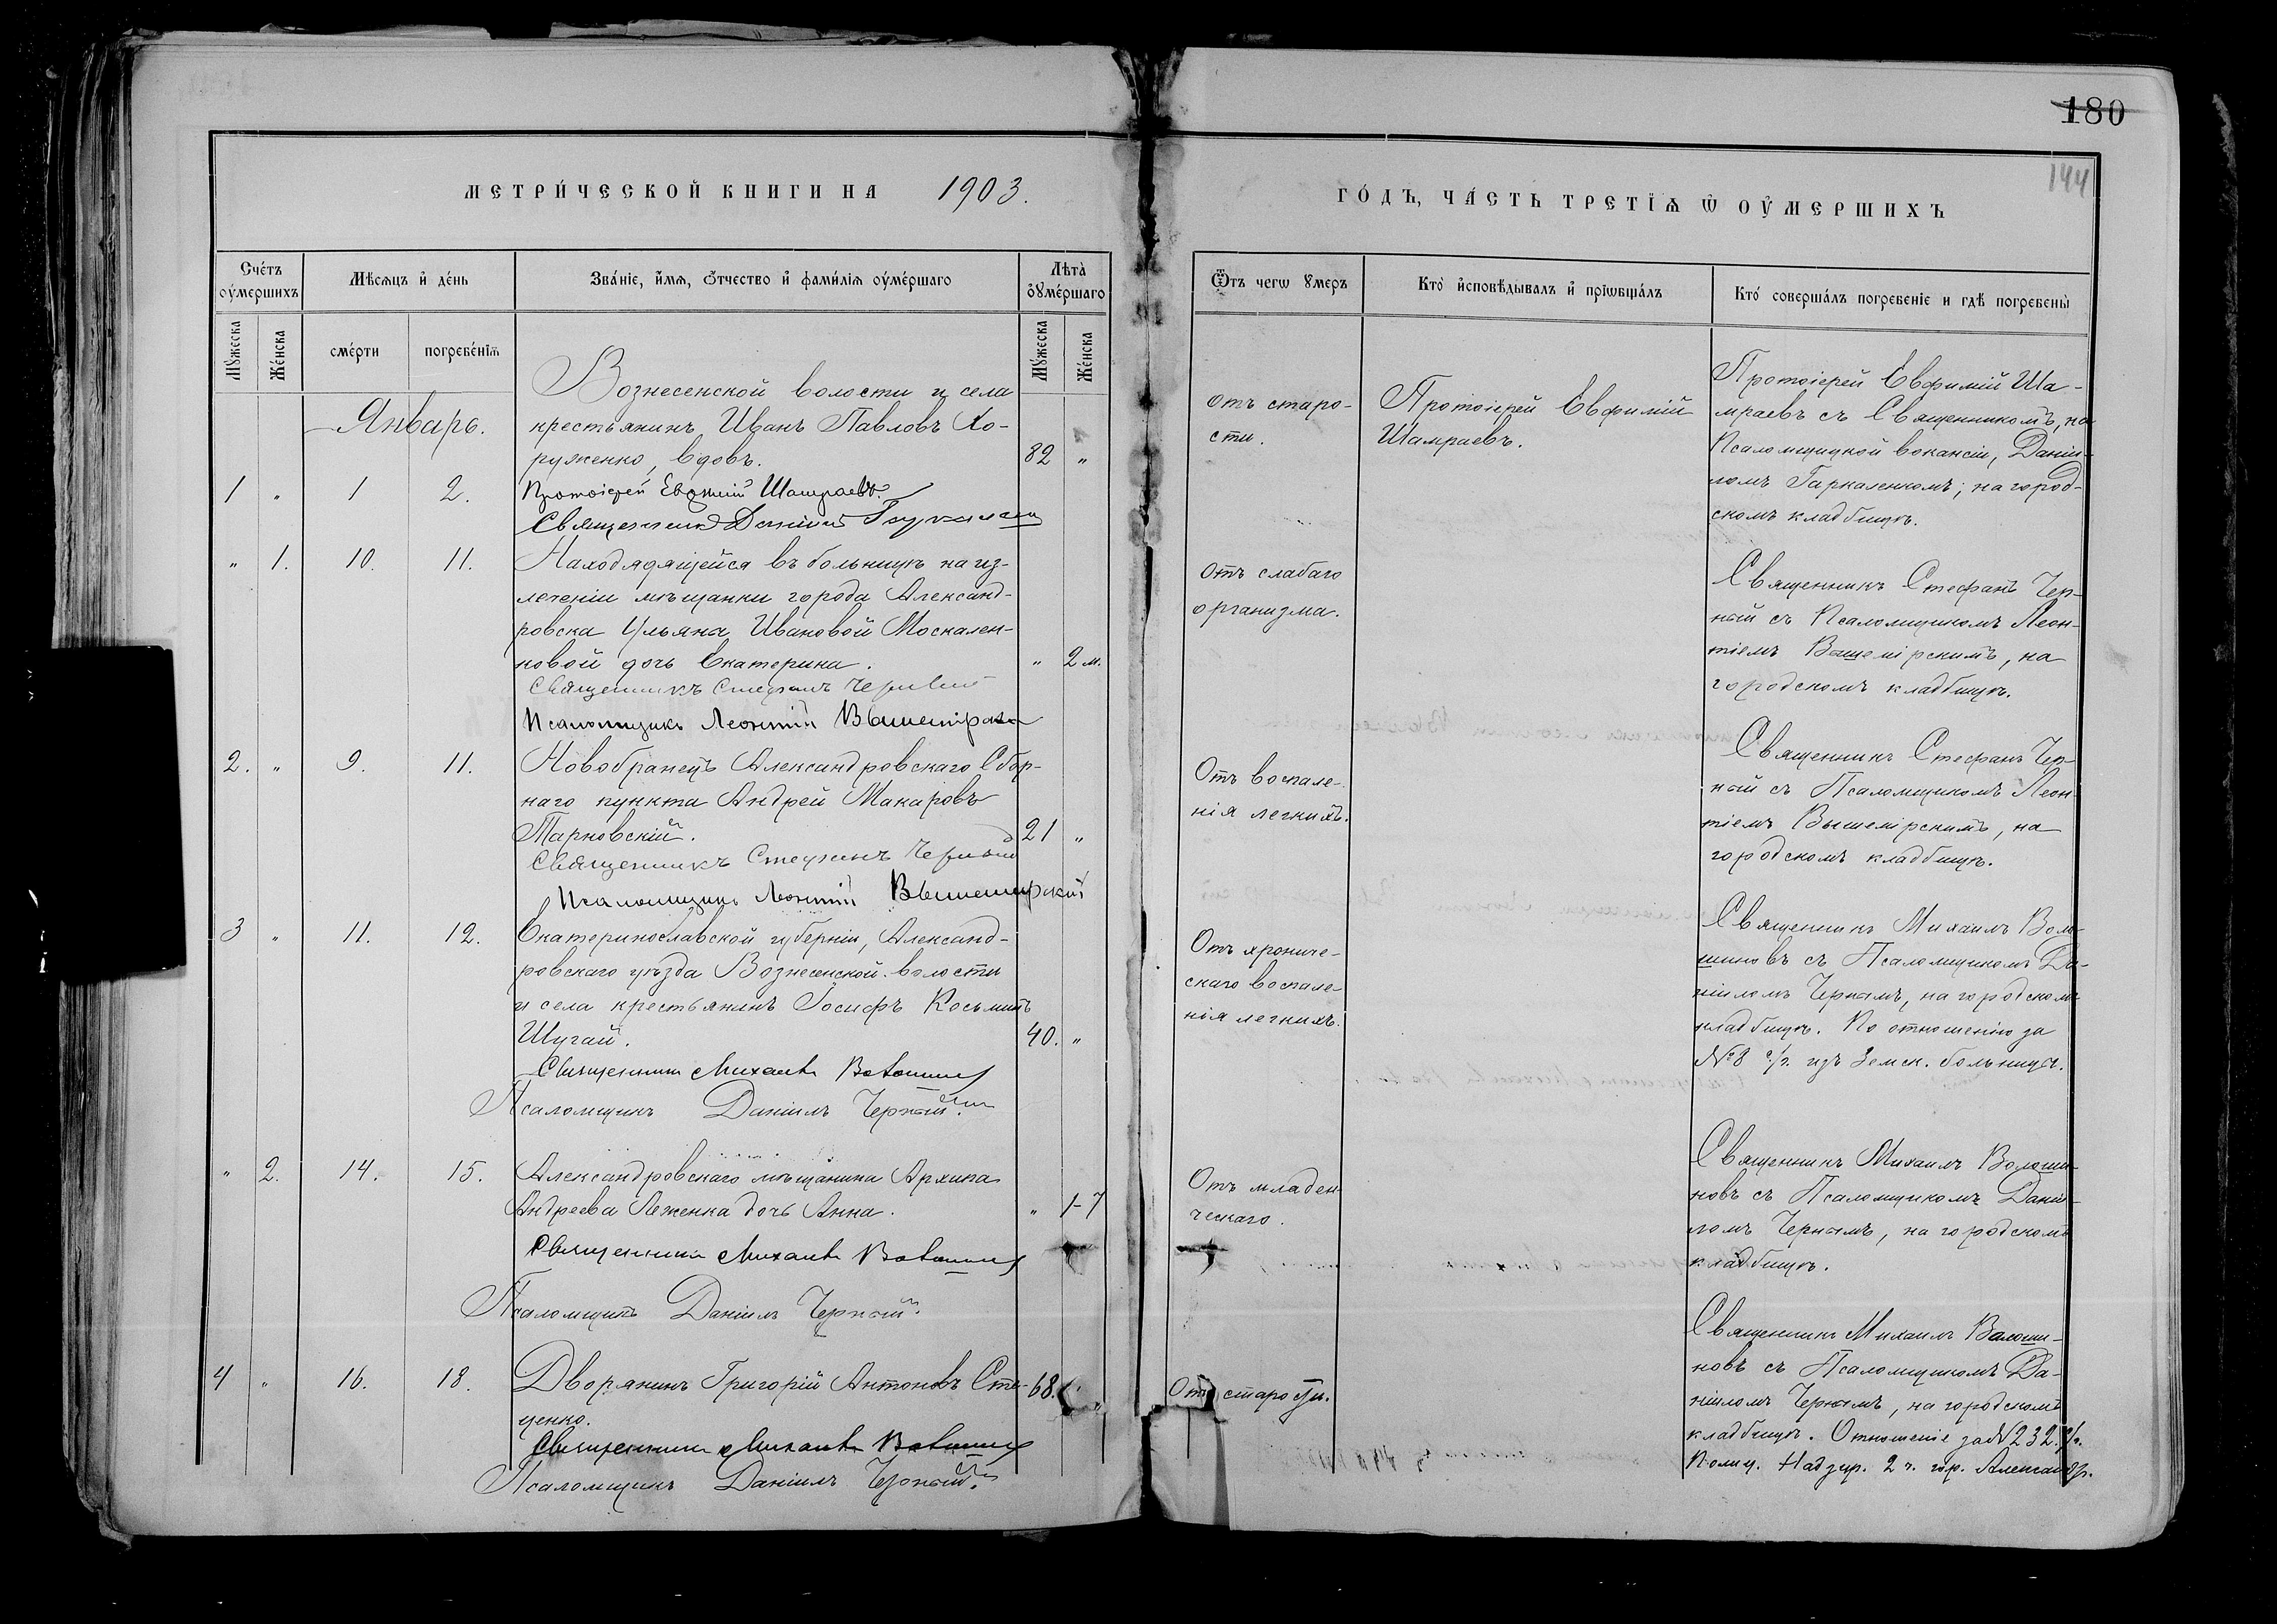 180
144
МЕТРИ́ЧЕСКОЙ КНИГИ НА 1903.
ГО́ДЪ, ЧА́СТЬ ТРЕТІѦ Ѡ ОУ҆МЕРШИХЪ
Сче́тъ оу҆мершихъ
Мѣсѧцъ и҆ де́нь
Зва́нїе, и҆́мѧ, ѻ҆́тчество и҆ фами́лїѧ оу҆ме́ршаго
Лѣта̀ оу҆ме́ршаго
Мꙋ́жеска
Же́нска
сме́рти
погребе́нїѧ
Мꙋ́жеска
Же́нска
Ѿ чегѡ ꙋмеръ
Кто̀ и҆сповѣ́дывалъ и҆ прїѡбща́лъ
Кто́ соверша́лъ погребенїе и гдѣ̀ погребены̀
Январь.
1 " 1 2.
Вознесенской волости и села
крестьянинъ Иванъ Павловъ Хо-
руженко, вдовъ. 82 "
Протоіерей Евфимій Шамраевъ.
Священникъ Даніилъ
отъ старо-
сти.
Протоіерей Евфимій
Шамраевъ.
Протоіерей Евфимій Ша-
мраевъ съ Священникомъ, на
Псаломщицкой вокансіи, Даніи-
ломъ Гаркаленкомъ; на город-
скомъ кладбищѣ.
" 1. 10. 11.
Находядящейся въ больницѣ на из-
леченіи мѣщанки города Александ-
ровска Ульяна Ивановой Москален-
ковой дочь Екатерина. " 2 м.
Священникъ Стефанъ Черный
Псаломщикъ Леонтій Вышемірскій
Отъ слабаго
организма.
Священникъ Стефанъ Чер-
ный съ Псаломщикомъ Леон-
тіемъ Вышемірскимъ, на
городскомъ кладбищѣ.
2. " 9. 11.
Новобранецъ Александровскаго Сбор-
наго пункта Андрей Макаровъ
Тарновскій. 21 "
Священникъ Стефанъ Черный
Псаломщикъ Леонтій Вышемирскій
Отъ воспале-
нія легкихъ.
Священникъ Стефанъ Чер-
ный съ Псаломщикомъ Леон-
тіемъ Вышемірскимъ, на
городскомъ кладбищѣ.
3 " 11. 12.
Екатеринославской губерніи, Александ-
ровскаго уѣзда Вознесенской волости
и села крестьянинъ Іосифъ Косьминъ
Шугай. 40. "
Священникъ Михаилъ Волошиновъ
Псаломщикъ Даніилъ Черный.
Отъ хрониче-
скаго воспале-
нія легкихъ.
Священникъ Михаилъ Воло-
шиновъ съ Псаломщикомъ Да-
ніиломъ Чернымъ, на городскомъ
кладбищѣ. По отношенію за
№ 8 с/г. изъ Земск. больницы.
" 2. 14. 15.
Александровскаго мѣщанина Архипа
Андреева Леженка дочь Анна. " 1-7
Священникъ Михаилъ Волошиновъ
Псаломщикъ Даніилъ Черный.
Отъ младен-
ческаго.
Священникъ Михаилъ Волоши-
новъ съ Псаломщикомъ Даніи-
ломъ Чернымъ, на городскомъ
кладбищѣ.
4 " 16. 18.
Дворянинъ Григорій Антоновъ Сте-
ценко. 68. "
Священникъ Михаилъ Волошиновъ
Псаломщикъ Даніилъ Черный.
Отъ старости.
Священникъ Михаилъ Волоши-
новъ съ Псаломщикомъ Да-
ніиломъ Чернымъ, на городскомъ
кладбищѣ. Отношеніе за № 232. с/г.
Полиц. Надзир. 2 ч. гор. Александр.